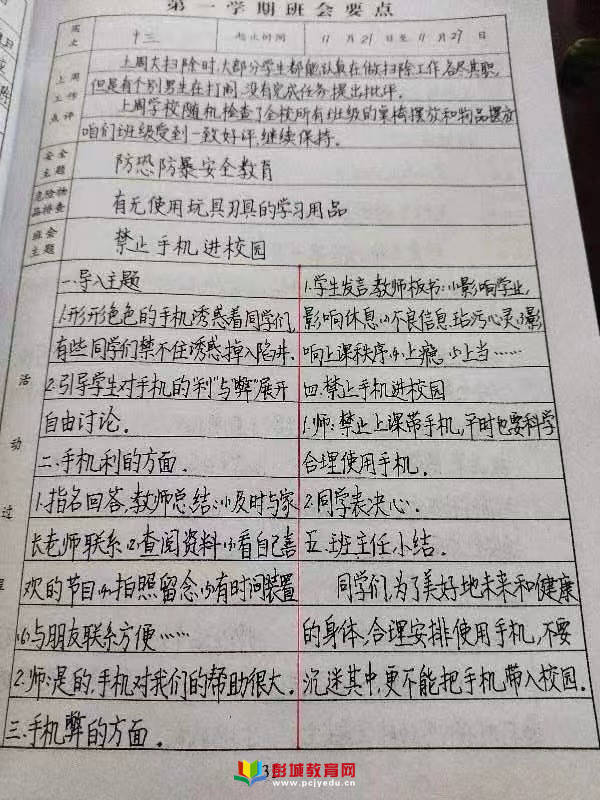 第一学期班会要点
周次 十三 起止时间 11月21日至11月27日
上周工作点评
上周大扫除时,大部分学生都能认真在做扫除工作,各尽其职,
但是有个别男生在打闹,没有完成任务提出批评.
上周学校随机检查了全校所有班级的桌椅摆放和物品摆放
咱们班级受到一致好评,继续保持.
安全主题 防恐防暴安全教育
危险物品排查 有无使用玩具刃具的学习用品
班会主题 禁止手机进校园
活动过程
一.导入主题
1.形形色色的手机诱惑着同学们,
有些同学们禁不住诱惑,掉入陷阱.
2.引导学生对手机的"利"与"弊"展开
自由讨论.
二.手机利的方面.
1.指名回答,教师总结:(1)及时与家
长老师联系(2)查阅资料(3)看自己喜
欢的节目(4)拍照留念(5)有时间装置
(6)与朋友联系方便……
2.师:是的,手机对我们的帮助很大.
三.手机弊的方面.
1.学生发言,教师板书:(1)影响学业,
影响休息(2)不良信息,玷污心灵(3)影
响上课秩序(4)上瘾(5)上当……
四.禁止手机进校园
1.师:禁止上课带手机,平时也要科学
合理使用手机.
2.同学表决心.
五.班主任小结.
同学们,为了美好地未来和健康
的身体,合理安排使用手机,不要
沉迷其中,更不能把手机带入校园.
3
彭城教育网
www.pcjyedu.cn